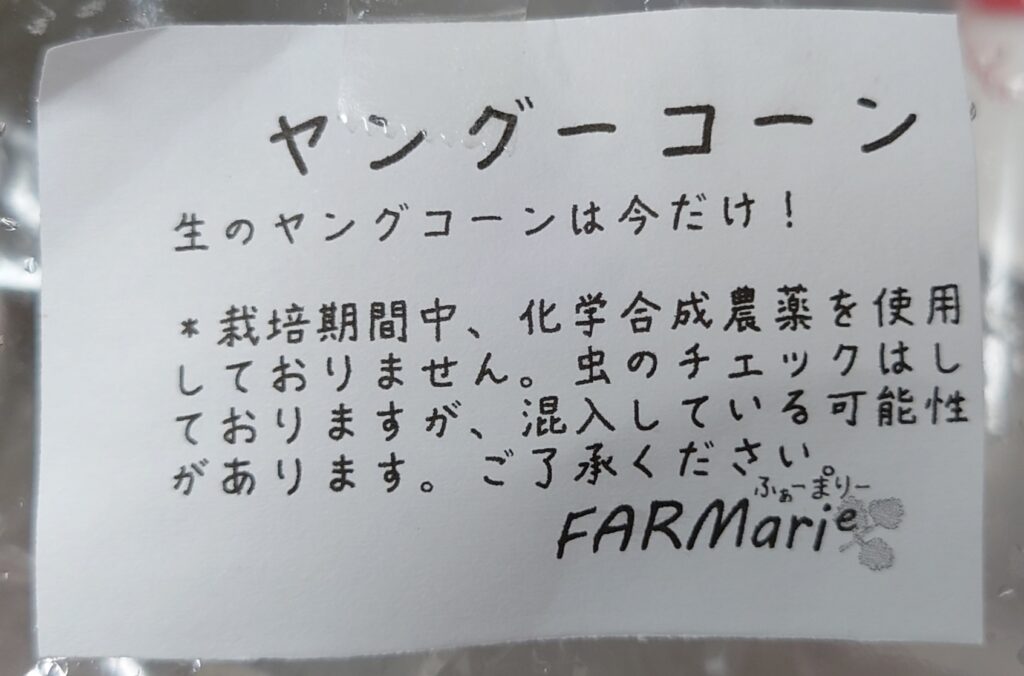 ヤングーコーン
生のヤングコーンは今だけ！
*栽培期間中、化学合成農薬を使用
しておりません。虫のチェックはし
ておりますが、混入している可能性
があります。ご了承ください。
ふぁーまりー
FARMarie